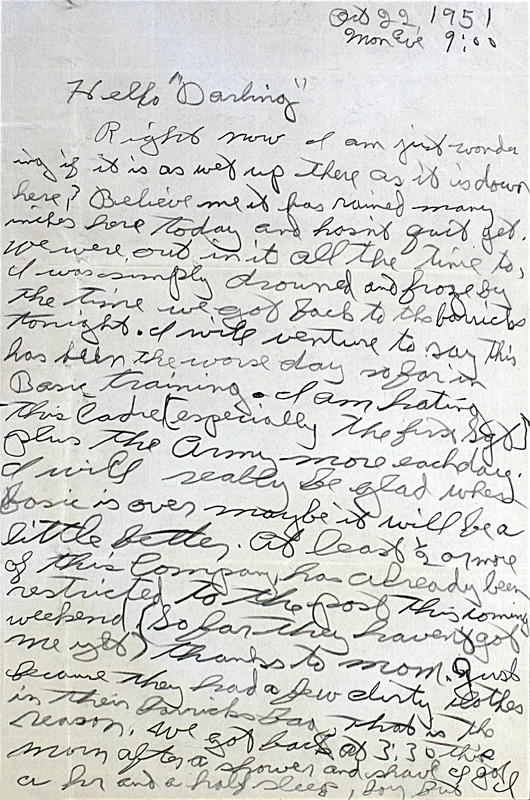 Oct 22, 1951
Mon Eve 9:00
Hello "Darling"
Right now I am just wonder
ing if it is as wet up there as it is down
here? Believe me it has rained many
inches here today and hasnt quit yet.
We were out in it all the time to,
I was simply drouned and froze by
the time we got back to the barricks
tonight. I will venture to say this
has been the worse day so far in
Basic training. I am hating
this Cadre (especially the first Sgt)
plus the Army more each day.
I will really be glad when
basic is over maybe it will be a
little better. At least ½ or more
of this Company has already been
restricted to the post this coming
weekend (So far they havent got
me yet) thanks to mom. Just
because they had a few dirty clothes
in their barricks bag, that is the
reason. We got back at 3:30 this
morn after a shower and shave I got
a hr and a half sleep, boy but